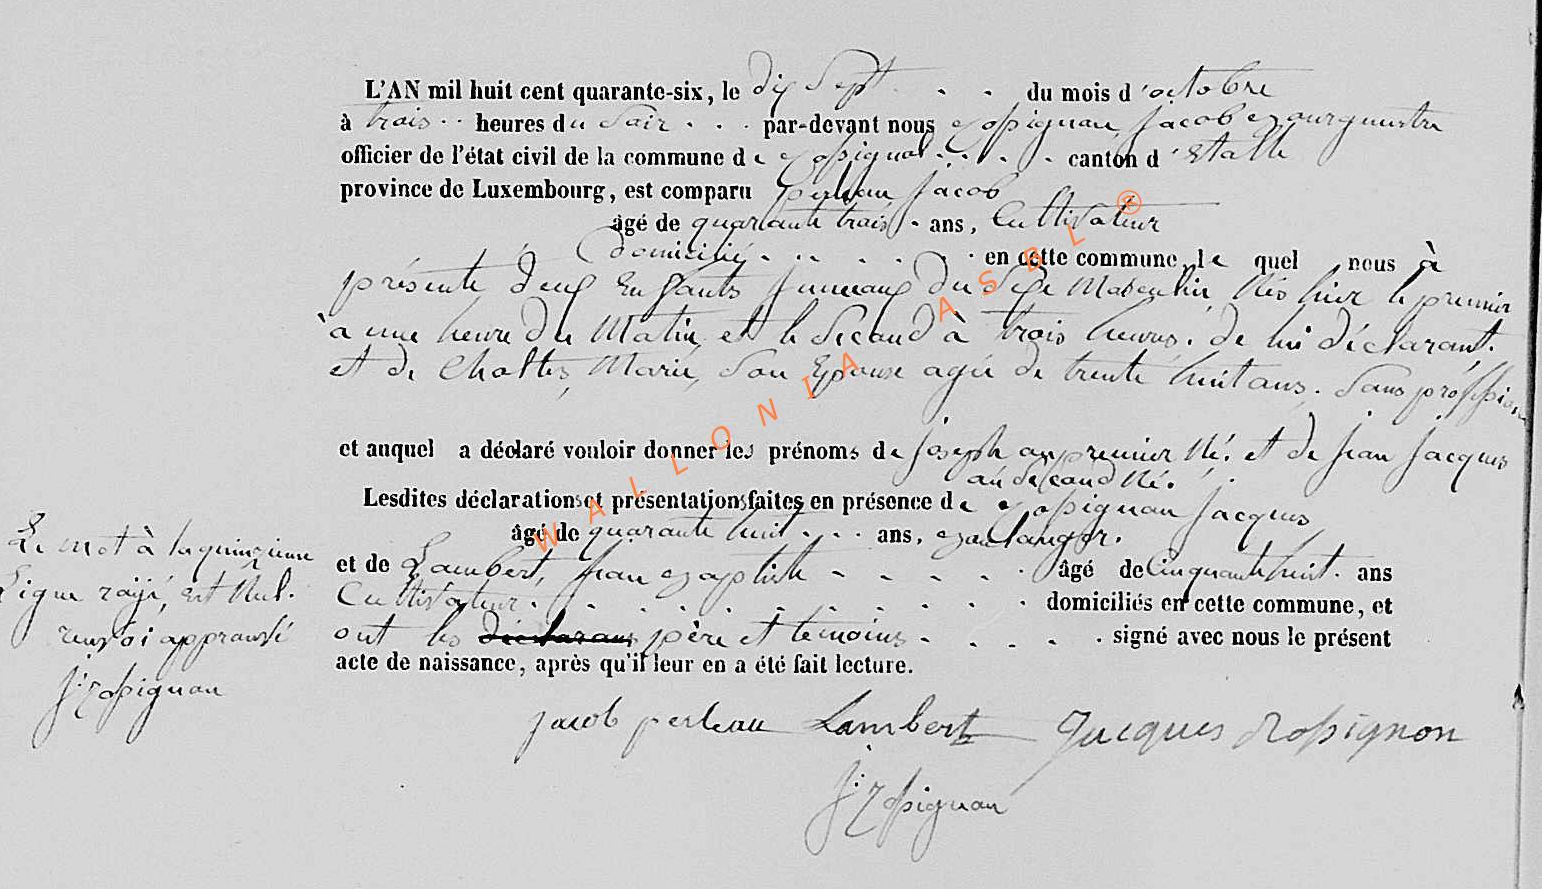 L'AN mil huit cent quarante-six, le dix Sept du mois d'octobre
à trois heures du Soir par-devant nous Rossignon, Jacob Bourgmestre
officier de l'état civil de la commune de Rossignol canton d'Etalle
province de Luxembourg, est comparu Perleau Jacob
âgé de quarante trois ans, Cultivateur
domicilié en cette commune, le quel nous à
présenté deux Enfants jumeaux du Sexe Masculin nés hier le premier
à une heure du Matin et le Second à trois heures. de lui déclarant.
et de Cholter, Marie, Son Epouse agée de trente huit ans. Sans profession
et auquel a déclaré vouloir donner les prénoms de Joseph au premier Né. et de Jean Jacques
au Second Né.
Lesdites déclarations et présentations faites en présence de Rossignon Jacques
âgé de quarante huit ans, Boulanger.
et de Lambert, Jean Baptiste âgé de Cinquante huit ans
Cultivateur domiciliés en cette commune, et
ont les déclarans père et témoins signé avec nous le présent
acte de naissance, après qu'il leur en a été fait lecture.
Le mot à la quinzieme
Ligne rayé, est Nul.
renvoi approuvé
J: Rossignon
jacob perleau Lambert Jacques Rossignon
J: Rossignon
WALLONIA ASBL ®